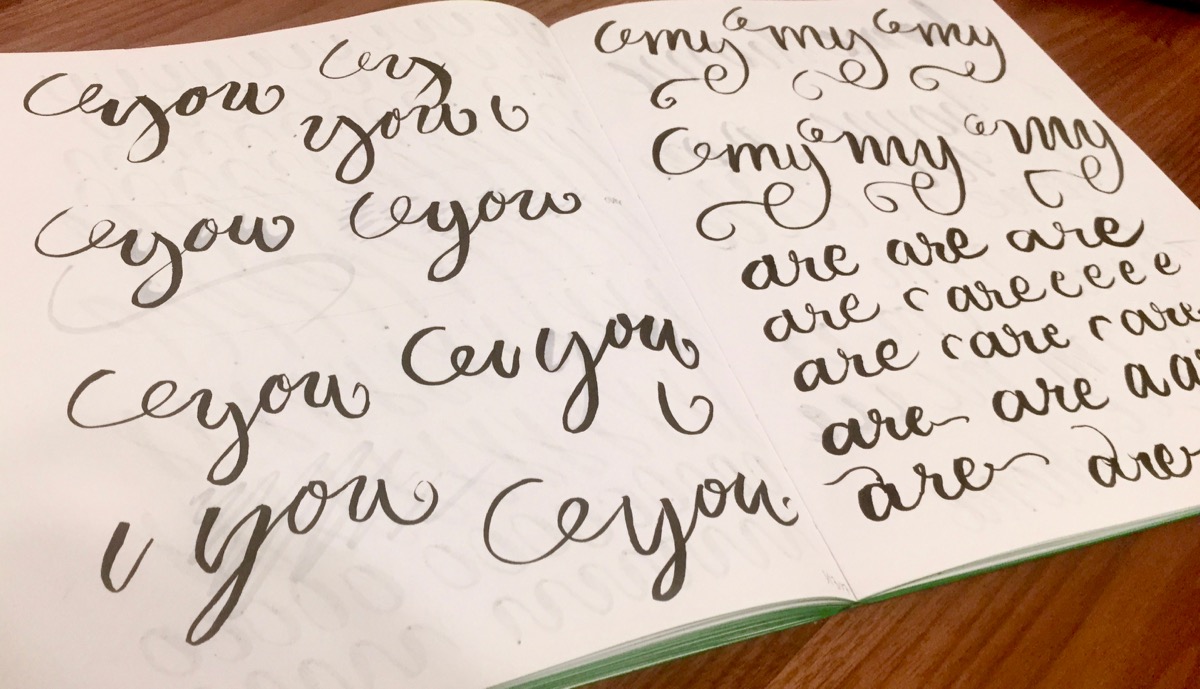 you y
you
you you
you you
you you
my my my
my my my
are are are
are c areeeee
are care care
are are aa
are are